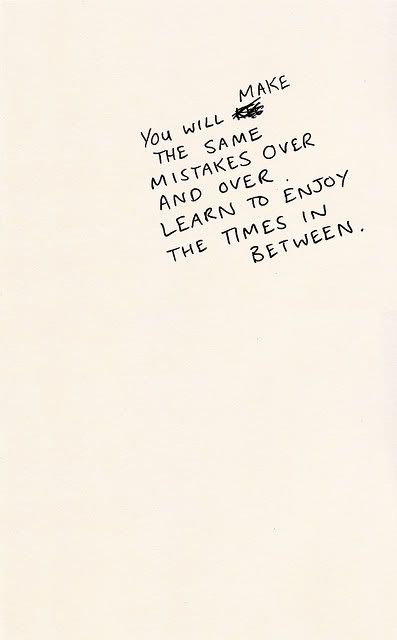 YOU WILL MAKE
THE SAME
MISTAKES OVER
AND OVER.
LEARN TO ENJOY
THE TIMES IN
BETWEEN.